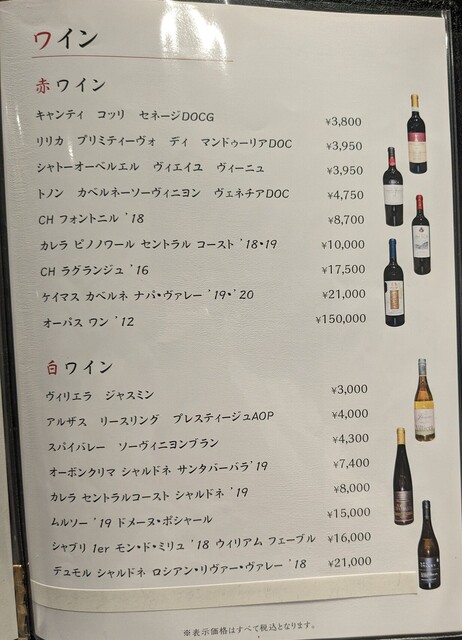 ワイン
赤ワイン
キャンティ コッリ セネージDOCG ¥3,800
リリカ プリミティーヴォ ディ マンドゥーリアDOC ¥3,950
シャトーオーベルエル ヴィエイユ ヴィーニュ ¥3,950
トノン カベルネーソーヴィニヨン ヴェネチアDOC ¥4,750
CH フォントニル '18 ¥8,700
カレラ ピノノワール セントラル コースト '18・19 ¥10,000
CH ラグランジュ '16 ¥17,500
ケイマス カベルネ ナパ・ヴァレー '19・'20 ¥21,000
オーパス ワン '12 ¥150,000
白ワイン
ヴィリエラ ジャスミン ¥3,000
アルザス リースリング プレスティージュAOP ¥4,000
スパイバレー ソーヴィニヨンブラン ¥4,300
オーボンクリマ シャルドネ サンタバーバラ'19 ¥7,400
カレラ セントラルコースト シャルドネ '19 ¥8,000
ムルソー '19 ドメーヌ・ポシャール ¥15,000
シャブリ 1er モン・ド・ミリュ '18 ウィリアム フェーブル ¥16,000
テュモル シャルドネ ロシアン・リヴァー・ヴァレー '18 ¥21,000
※表示価格はすべて税込となります。